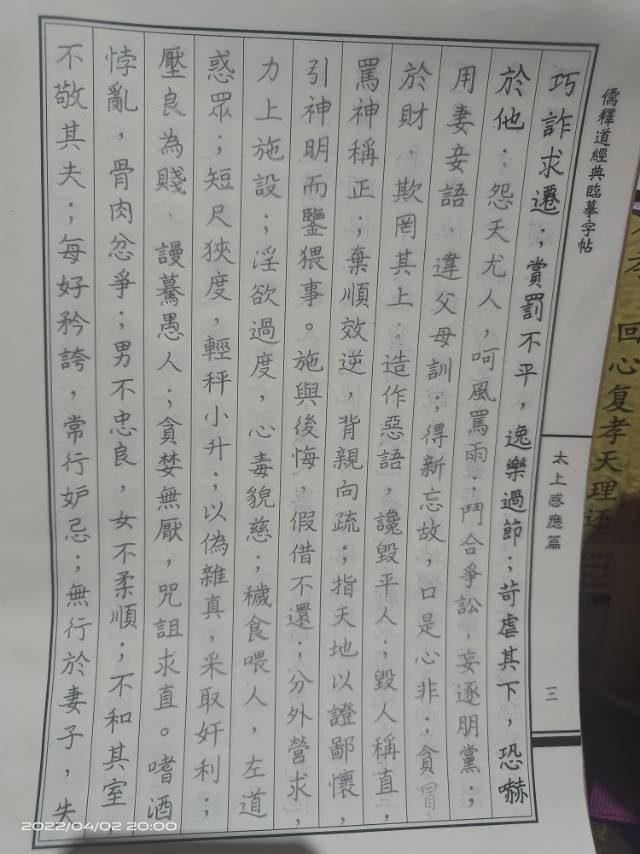 儒釋道經典臨摹字帖
太上感應篇
三
巧詐求遷；賞罰不平，逸樂過節；苛虐其下，恐嚇
於他；怨天尤人，呵風罵雨；鬥合爭訟，妄逐朋黨；
用妻妾語，違父母訓；得新忘故，口是心非；貪冒
於財，欺罔其上；造作惡語，讒毀平人；毀人稱直，
罵神稱正；棄順效逆，背親向疏；指天地以證鄙懷，
引神明而鑒猥事。施與後悔，假借不還；分外營求，
力上施設；淫欲過度，心毒貌慈；穢食喂人，左道
惑眾；短尺狹度，輕秤小升；以偽雜真，采取奸利；
壓良為賤，謾驀愚人；貪婪無厭，咒詛求直。嗜酒
悖亂，骨肉忿爭；男不忠良，女不柔順；不和其室
不敬其夫；每好矜誇，常行妒忌；無行於妻子，失
回心复孝天理还
2022/04/02 20:00